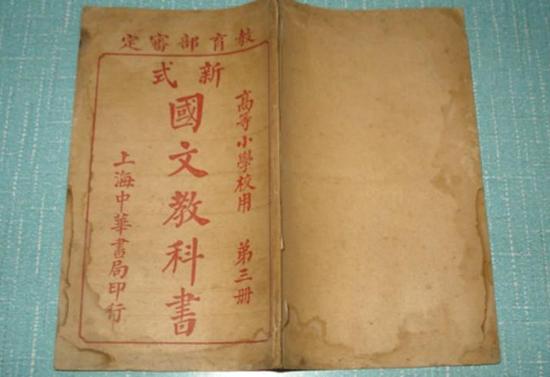 教育部審定
高等小學校用 第三册
新式
國文教科書
上海中華書局印行